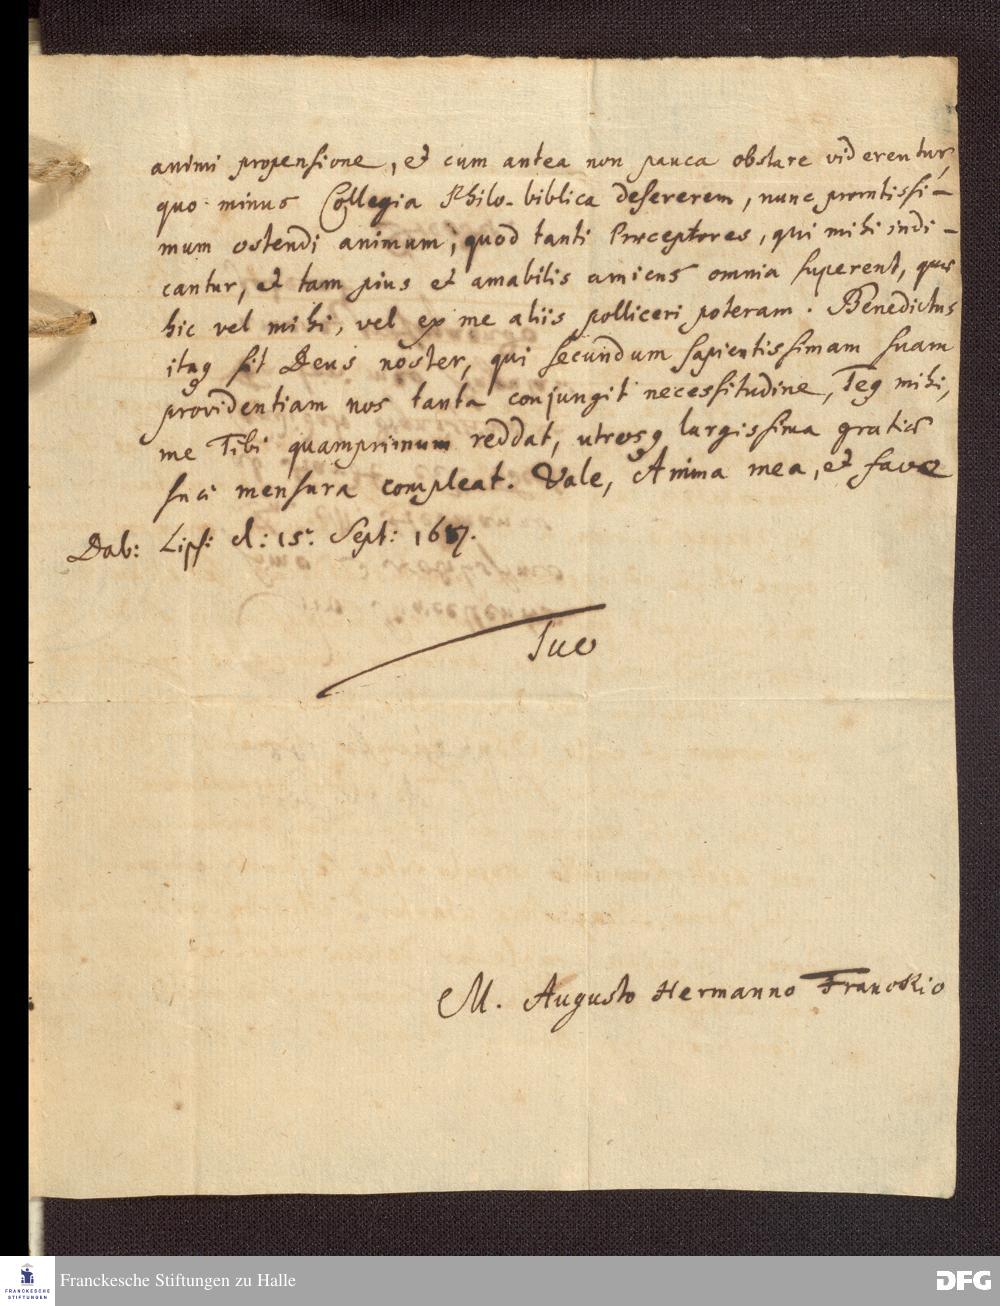 animi propensione, et cum antea non pauca obstare viderentur,
quo minus Collegia Philo-biblica desererem, nunc promtissi-
mum ostendi animum, quod tanti Præceptores, qui mihi indi-
cantur, et tam pius et amabilis amicus omnia superent, quæ
hic vel mihi, vel ex me aliis polliceri poteram. Benedictus
itaq sit Deus noster, qui secundum sapientissimam suam
providentiam nos tanta conjungit necessitudine, Teq mihi,
me Tibi quamprimum reddat, utrosq largissima gratiæ
suæ mensura compleat. Vale, Anima mea, et fave
Dab: Lips: d: 15. Sept: 1687.
Tuo
M. Augusto Hermanno Franckio
FRANCKESCHE STIFTUNGEN
Franckesche Stiftungen zu Halle
DFG